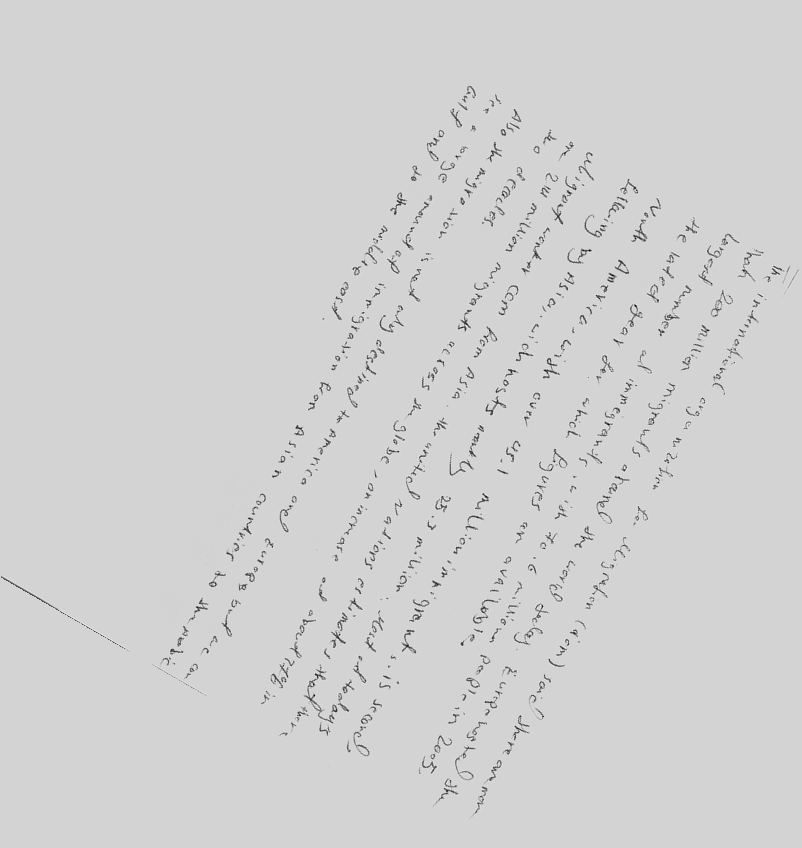 the international organization for Migration (iom) said there are more
than 200 million migrants around the world today. Europe hosted the
largest number of immigrants, with 70.6 million people in 2005.
the latest year for which figures are available.
North America, with over 45.1 million immigrants, is second,
following by Asia, wich hosts nearly 25.3 million. Most of todays
migrant workers com from Asia. the united nations estimates that there
are 214 million migrants across the globe, an increase of about 37% in
two decades.
Also the migration is not only destined to America and Europe but we can
see a large amount of immigration from Asian countries to the
Gulf and to the middle east.